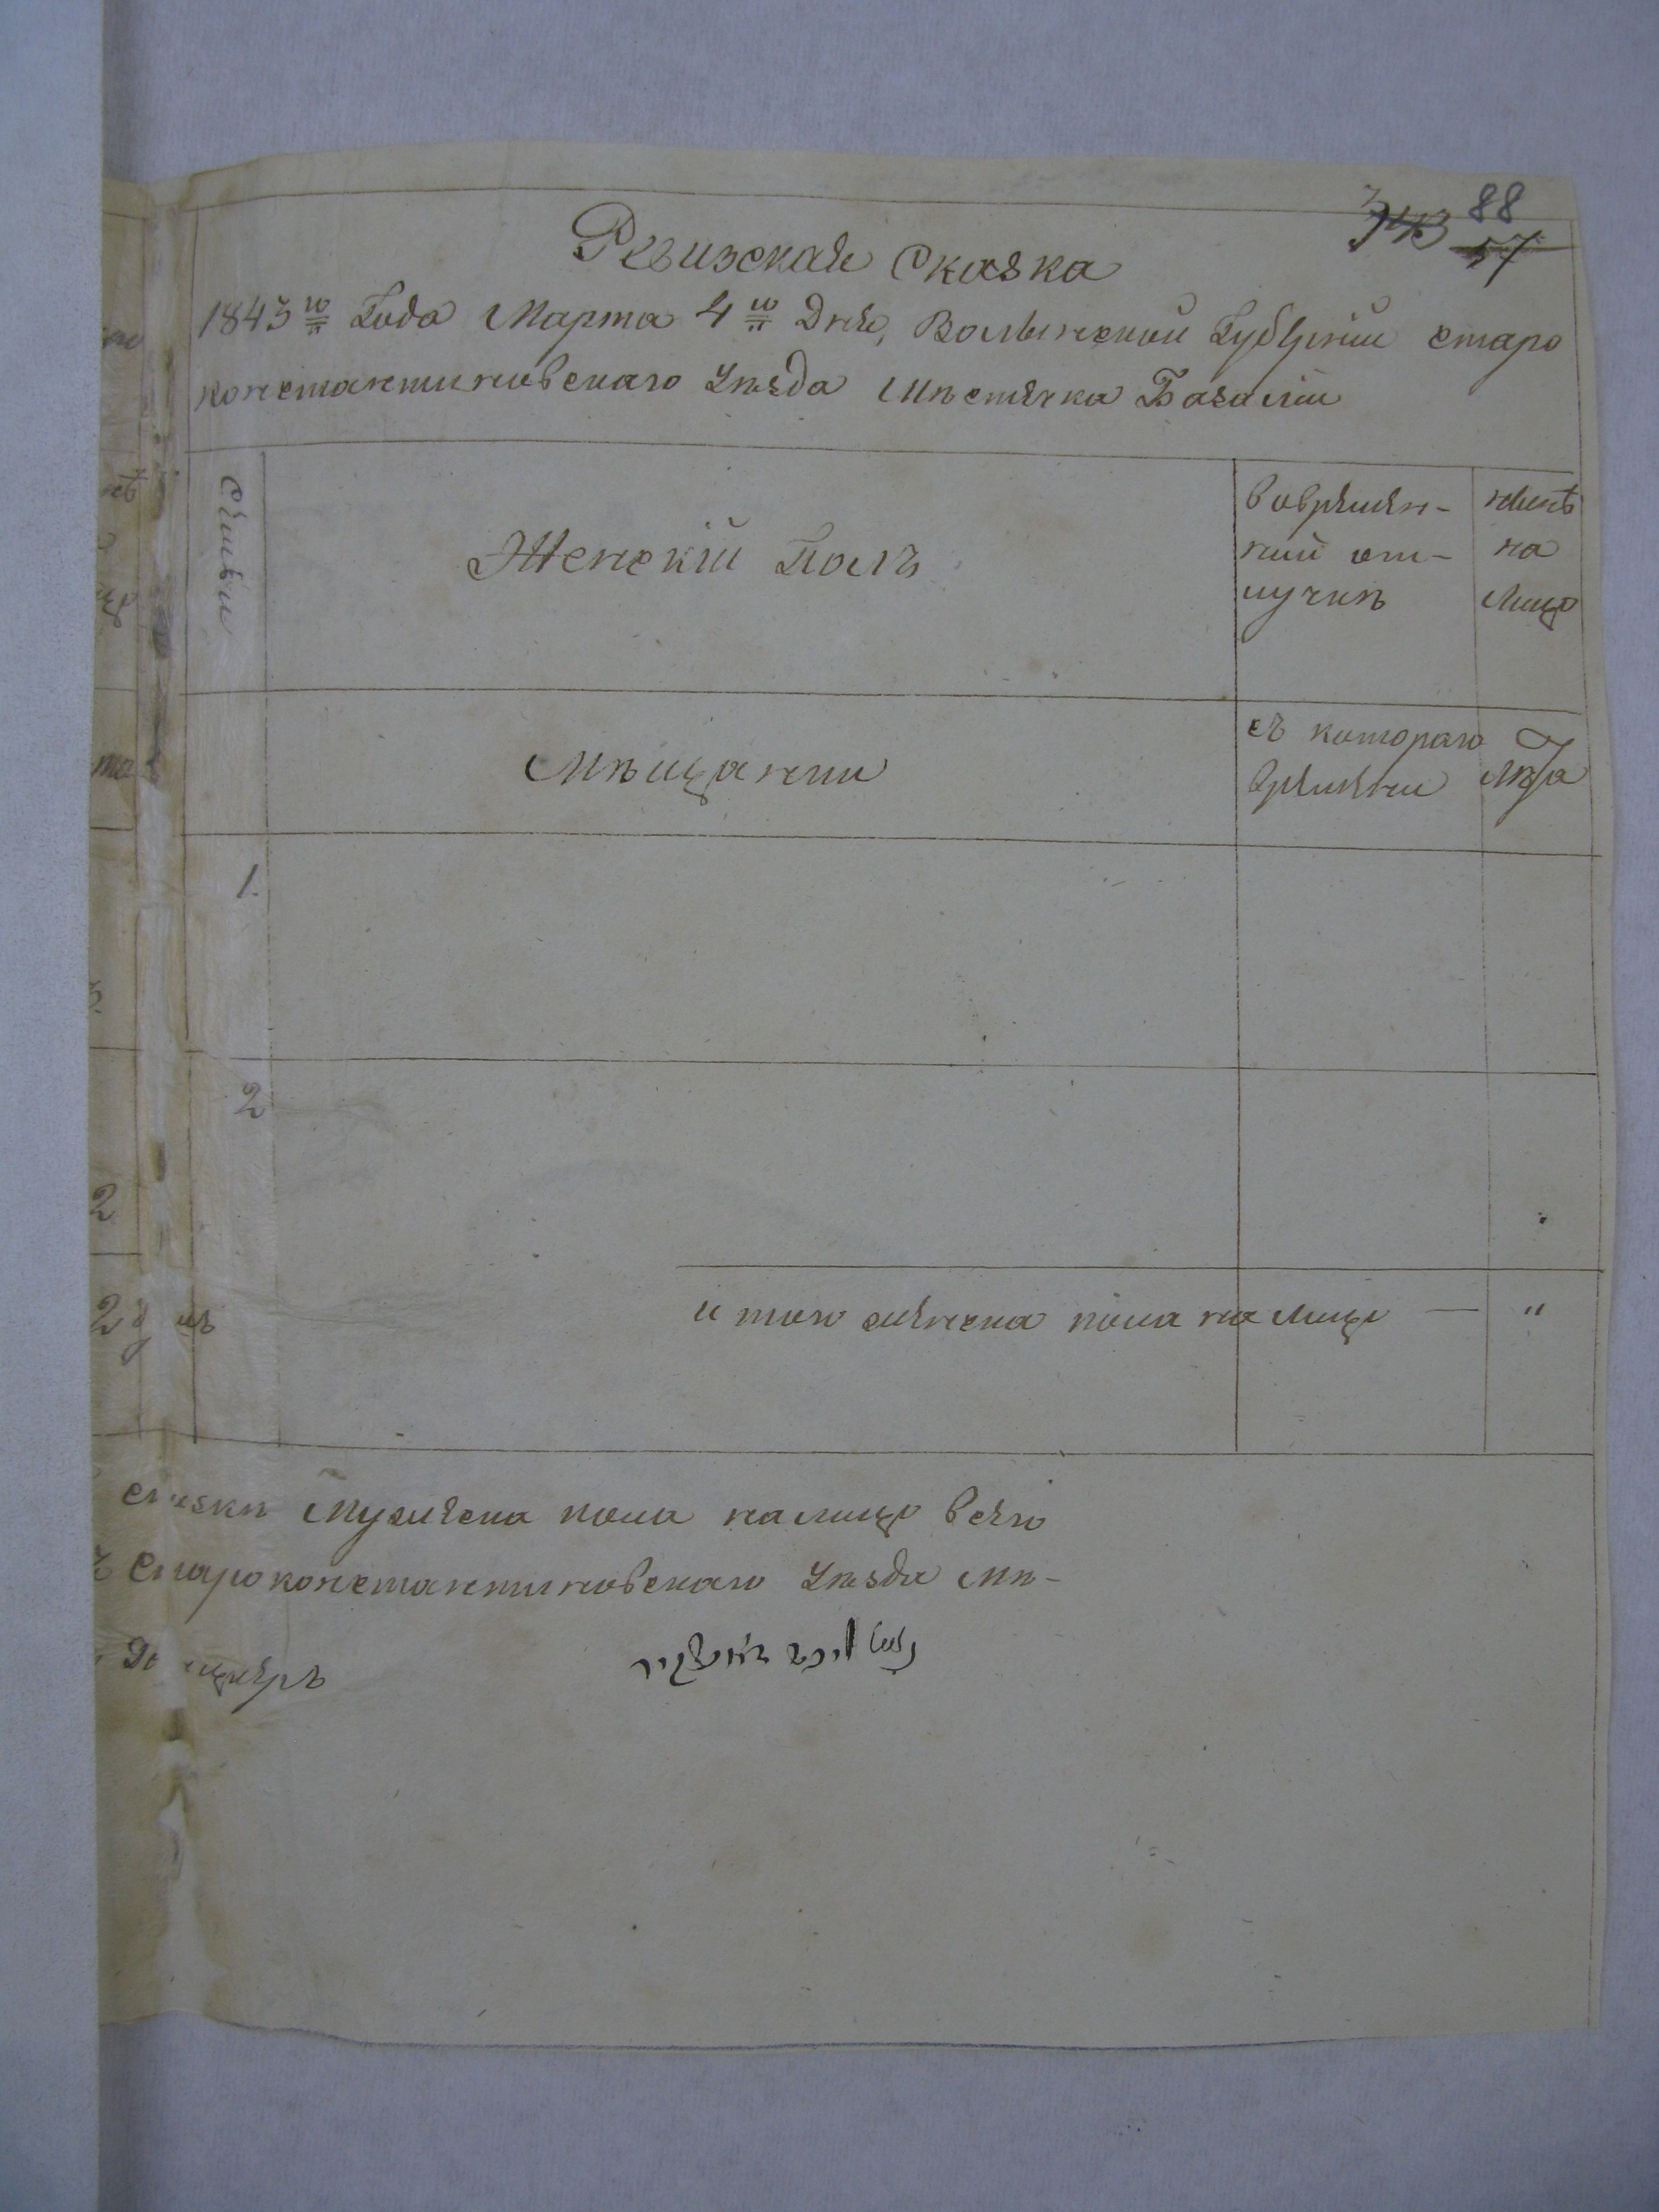 88
57
Ревизская Сказка
1843 го Года Марта 4 го Дня, Волынской Губерніи старо
константиновскаго уѣзда мѣстечка Базаліи
Семьи
Женскій Полъ
Вовремян-
ной от-
лучкѣ
нынѣ
на
лицо
Мѣщанки
съ котораго
времяни
Лѣта
1.
2
2
и того женска пола на лице — "
сказки мужеска пола налицо всего
Староконстантиновскаго уѣзда мѣ-